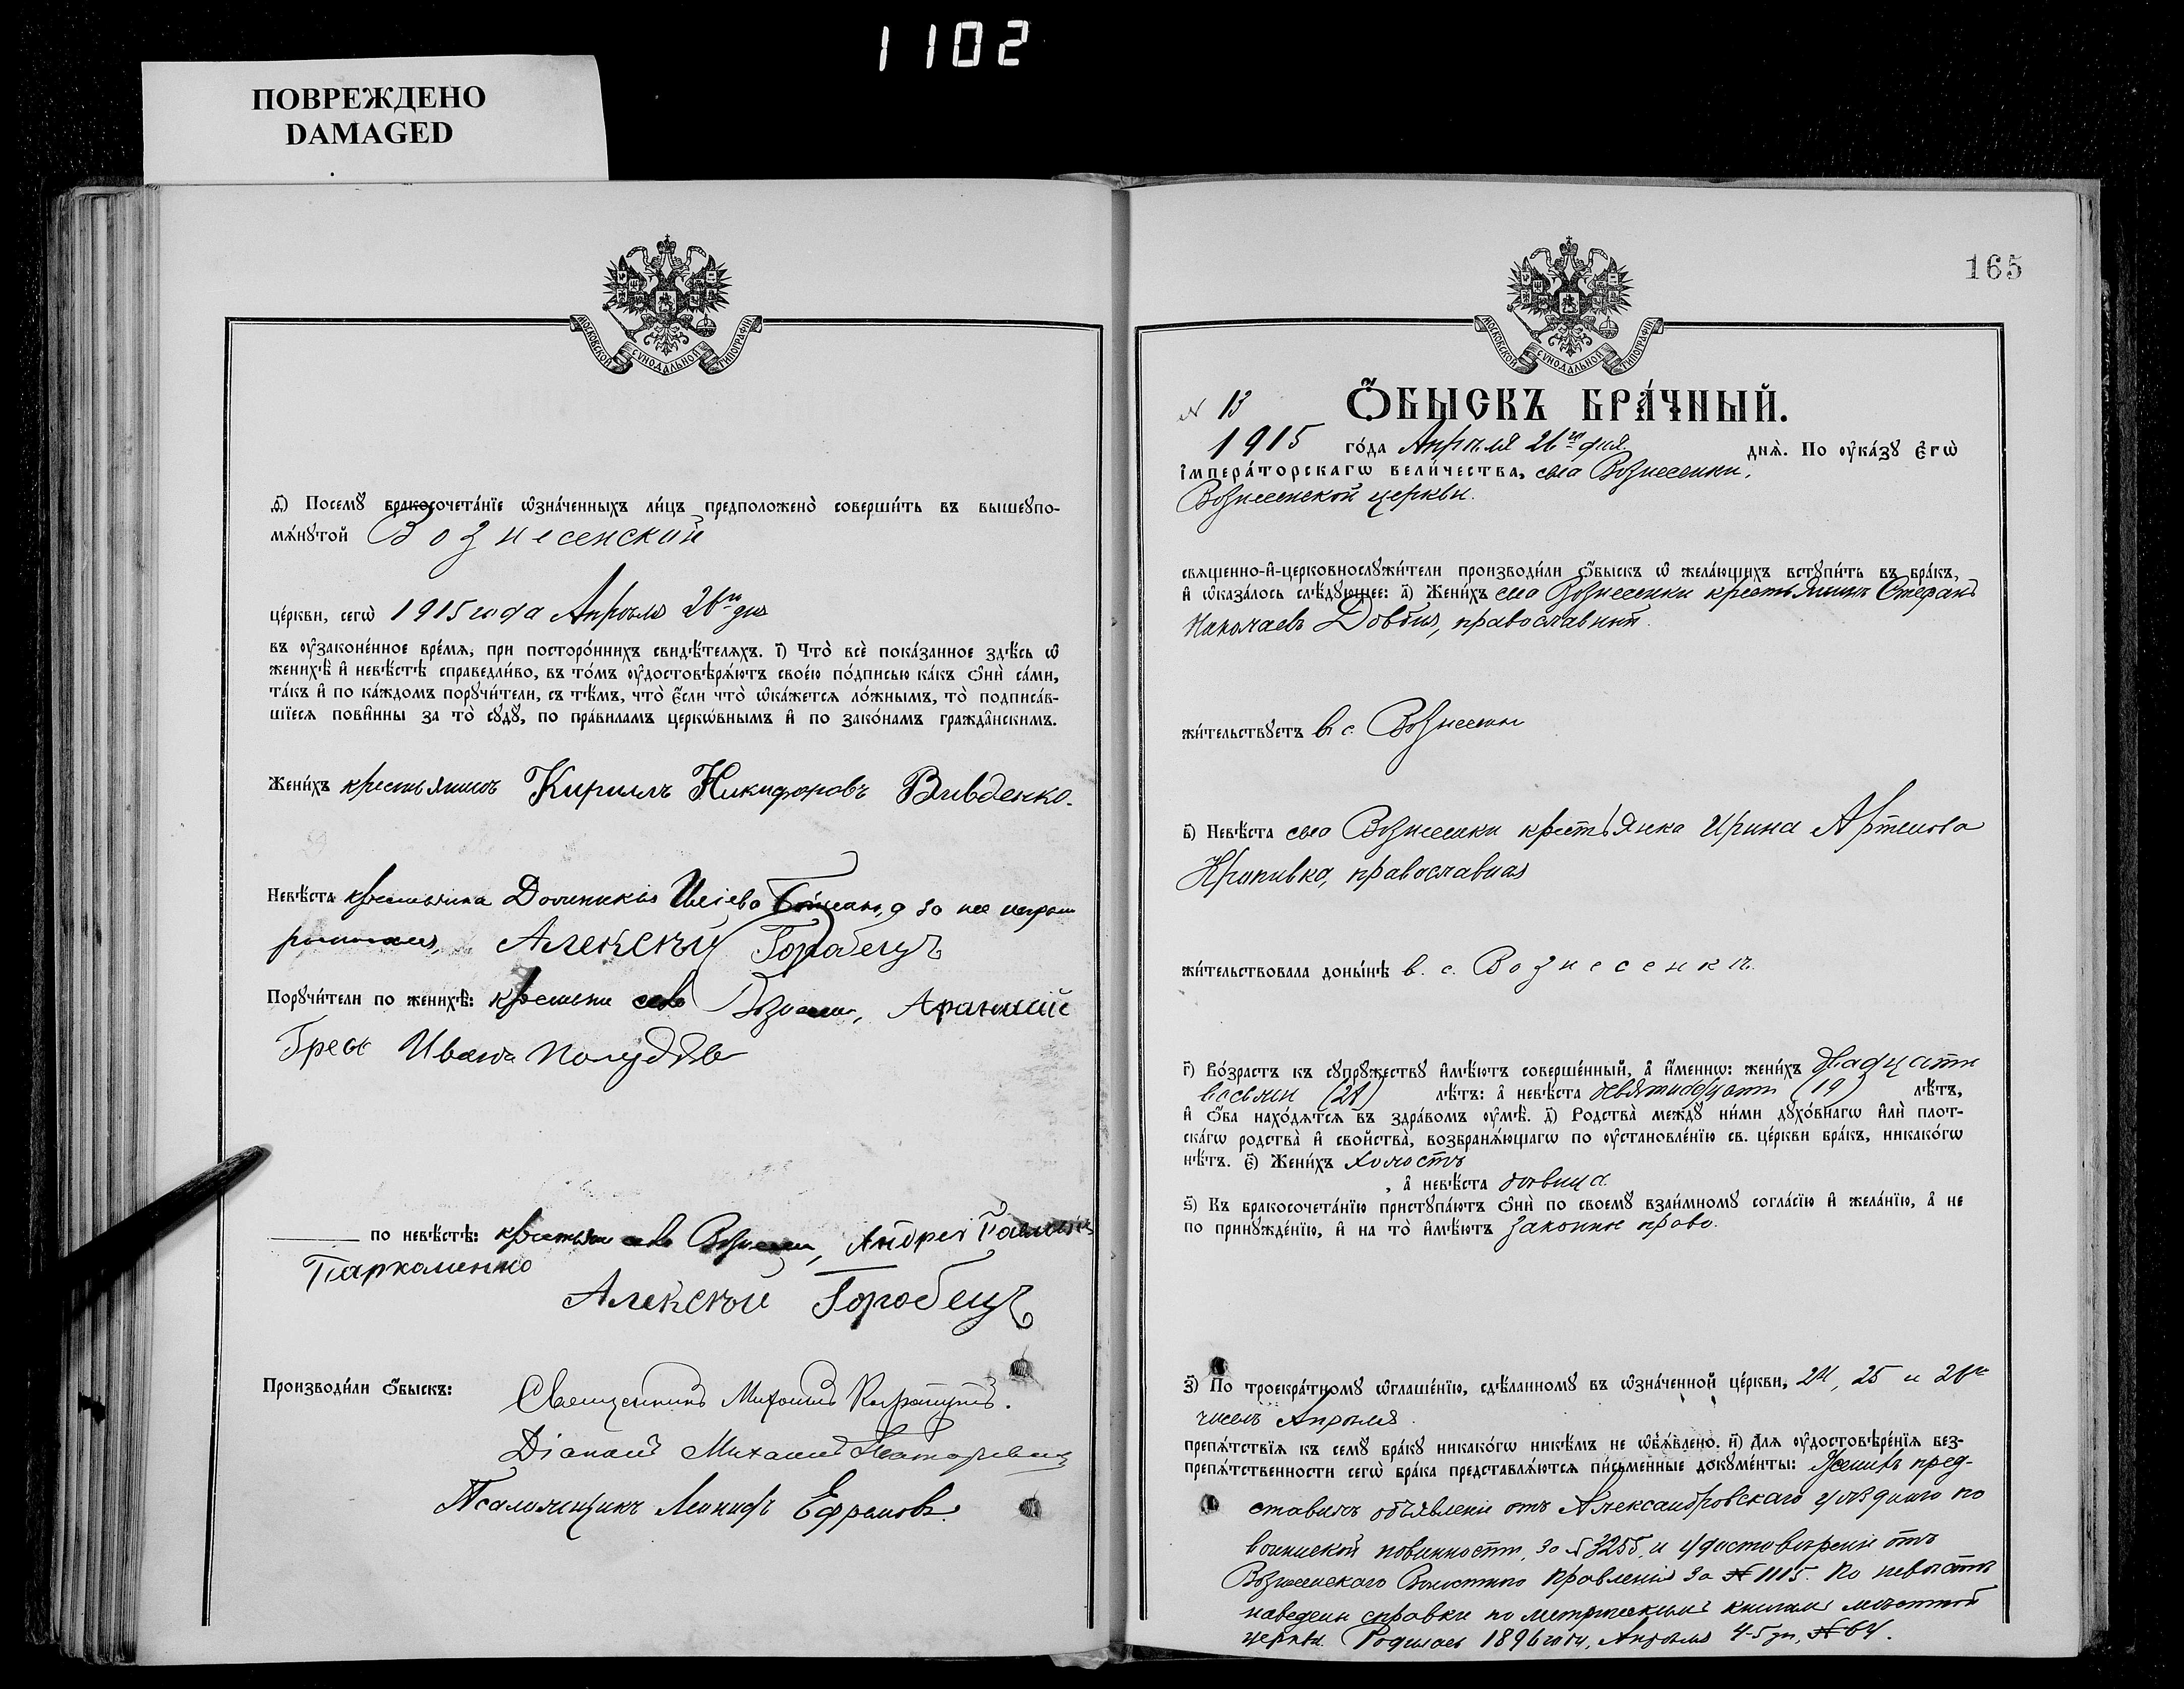 1102
ПОВРЕЖДЕНО
DAMAGED
МОСКОВСКОЙ СѴНОДАЛЬНОЙ ТИПОГРАФІИ
ѳ҃) Посемꙋ бракосочета́нїе ѡ҆зна́ченныхъ ли́цъ предположено̀ соверши́ть въ вышеꙋпо-
мѧ́нꙋтой Вознесенской
це́ркви, сегѡ̀ 1915 года Апрѣля 26го дня
въ ᲂу҆законе́нное вре́мѧ, при посторо́ннихъ свидѣ́телѧхъ. і҃) Что̀ всѐ пока́занное здѣ́сь ѡ҆
женихѣ̀ и҆ невѣ́стѣ справедли́во, въ то́мъ ᲂу҆достовѣрѧ́ютъ свое́ю по́дписью ка́къ ѻ҆нѝ са́ми,
та́къ и҆ по ка́ждомъ порꙋчи́тели, съ тѣ́мъ, что̀ є҆́сли что̀ ѡ҆ка́жетсѧ ло́жнымъ, то̀ подписа́в-
шїесѧ пови́нны за то̀ сꙋдꙋ̀, по пра́виламъ церкѡ́внымъ и҆ по зако́намъ гражда̂нскимъ.
Жени́хъ крестьянинъ Кириллъ Никифоровъ Вивденко.
Невѣ́ста крестьянка Доминикія Иліева а за нее неграм
Алексѣй Горобецъ
Порꙋчи́тели по женихѣ̀: крестьяне села Вознесенки, Афанасій
Иванъ
по невѣ́стѣ: крестьяне села Вознесенки, Андрей
Пархоменко
Алексѣй Горобецъ
Производи́ли ѻ҆́быскъ: Священникъ Михаилъ
Діаконъ Михаилъ
Псаломщикъ Ефремовъ.
165
МОСКОВСКОЙ СѴНОДАЛЬНОЙ ТИПОГРАФІИ
N 13 Ѻ҆́БЫСКЪ БРА́ЧНЫЙ.
1915 го́да Апрѣля 26го дня днѧ̀. По ᲂу҆ка́зꙋ є҆гѡ̀
і҆мпера́торскагѡ вели́чества, села Вознесенки,
Вознесенской церкви.
свѧщенно-и҆-церковнослꙋжи́тели производи́ли ѻ҆́быскъ ѡ҆ жела́ющихъ встꙋпи́ть въ бра́къ,
и҆ ѡ҆каза́лось слѣ́дꙋющее: а҃) Жени́хъ села Вознесенки крестьянинъ Стефанъ
Николаевъ Довбня, православный.
жи́тельствꙋетъ въ с. Вознесенкѣ
в҃) Невѣ́ста села Вознесенки крестьянка Ирина Артемова
Крипивка, православная
жи́тельствовала доны́нѣ в. с. Вознесенкѣ.
г҃) Во́зрастъ къ сꙋпрꙋ́жествꙋ и҆мѣ́ютъ соверше́нный, а҆ и҆́меннѡ: жени́хъ двадцати
восьми (28) лѣ́тъ: а҆ невѣ́ста девятнадцати (19) лѣ́тъ,
и҆ ѻ҆́ба нахо́дѧтсѧ въ здра́вомъ ᲂу҆мѣ̀. д҃) Родства̀ междꙋ̀ ни́ми дꙋхо́внагѡ и҆лѝ плот-
ска́гѡ родства̀ и҆ сво́йства̀, возбранѧ́ющагѡ по ᲂу҆становле́нїю св. це́ркви бра́къ, никако́гѡ
нѣ́тъ. є҃) Жени́хъ холостъ
, а҆ невѣ́ста дѣвица.
ѕ҃) Къ бракосочета́нїю пристꙋпа́ютъ ѻ҆нѝ по своемꙋ̀ взаи́мномꙋ согла́сїю и҆ жела́нїю, а҆ не
по принꙋжде́нїю, и҆ на то̀ и҆мѣ́ютъ законное право.
з҃) По троекра́тномꙋ ѡ҆глаше́нїю, сдѣ́ланномꙋ въ ѡ҆зна́ченной це́ркви, 24, 25 и 26го
чиселъ Апрѣля.
препѧ́тствїѧ къ семꙋ̀ бра́кꙋ никако́гѡ никѣ́мъ не ѡ҆б̾ѧ́влено. и҃) Длѧ ᲂу҆достовѣре́нїѧ без-
препѧ́тственности сегѡ̀ бра́ка представлѧ́ютсѧ пи́сьменные докꙋме́нты: Женихъ пред-
ставилъ объявленіе отъ Александровскаго уѣзднаго по
воинской повинности, за N 3255, и удостовѣреніе отъ
Вознесенскаго Волостного Правленія за N 1115. По невѣстѣ
наведены справки по метрическимъ книгамъ мѣстной
церкви. Родилась 1896 году, Апрѣля 4-5 дн, N 64.